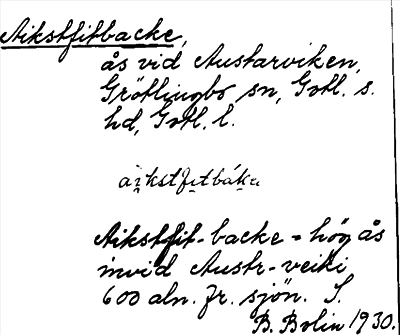 Aikstfitbacke,
ås vid Austarviken,
Grötlingbo sn, Gotl. s.
hd, Gotl. l.
áikstfitbáka
Aikstfit-backe = hög ås
invid Austr-veiki
600 aln. fr. sjön. S.
B. Bolin 1930.